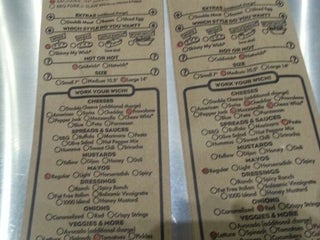 EXTRAS
Double Meat Bacon Fried Egg
WHICH STYLE DO YOU WANT?
Skinny My Wich
HOT OR NOT
Coldwich Hotwich
SIZE
Small 7" Medium 10.5" Large 14"
WORK YOUR WICH!
CHEESES
Double Cheese (additional charge)
American Swiss Cheddar Provolone
Pepper Jack Mozzarella Cheez Whiz
Bleu Feta Parmesan
SPREADS & SAUCES
BBQ Buffalo Marinara Pesto
Olive Salad Hot Pepper Mix
Hummus Sweet Chili Sriracha
MUSTARDS
Yellow Dijon Honey Deli
MAYOS
Regular Light Horseradish Spicy
DRESSINGS
Ranch Spicy Ranch
Fat Free Italian Balsamic Vinaigrette
1000 Island Honey Mustard
ONIONS
Caramelized Red Crispy Strings
VEGGIES & MORE
Avocado (additional charge)
Lettuce Spinach Tomatoes Pickles
EXTRAS
Double Meat Bacon Fried Egg
WHICH STYLE DO YOU WANT?
Skinny My Wich
HOT OR NOT
Coldwich Hotwich
SIZE
Small 7" Medium 10.5" Large 14"
WORK YOUR WICH!
CHEESES
Double Cheese (additional charge)
American Swiss Cheddar Provolone
Pepper Jack Mozzarella Cheez Whiz
Bleu Feta Parmesan
SPREADS & SAUCES
BBQ Buffalo Marinara Pesto
Olive Salad Hot Pepper Mix
Hummus Sweet Chili Sriracha
MUSTARDS
Yellow Dijon Honey Deli
MAYOS
Regular Light Horseradish Spicy
DRESSINGS
Ranch Spicy Ranch
Fat Free Italian Balsamic Vinaigrette
1000 Island Honey Mustard
ONIONS
Caramelized Red Crispy Strings
VEGGIES & MORE
Avocado (additional charge)
Lettuce Spinach Tomatoes